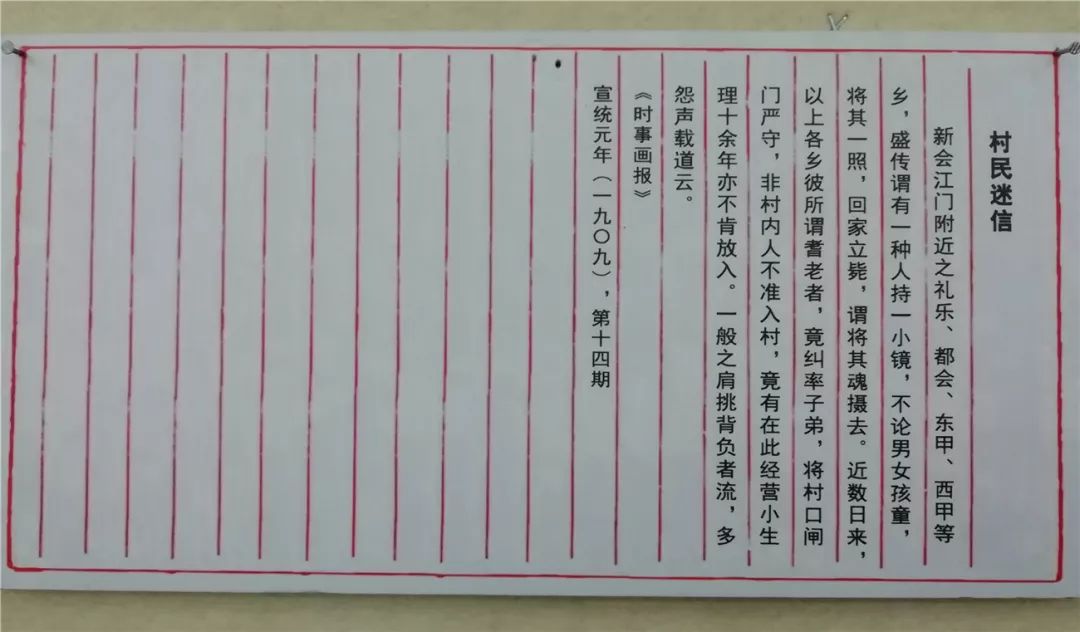 村民迷信
新会江门附近之礼乐、都会、东甲、西甲等
乡，盛传谓有一种人持一小镜，不论男女孩童，
将其一照，回家立毙，谓将其魂摄去。近数日来，
以上各乡彼所谓耆老者，竟纠率子弟，将村口闸
门严守，非村内人不准入村，竟有在此经营小生
理十余年亦不肯放入。一般之肩挑背负者流，多
怨声载道云。
《时事画报》
宣统元年（一九〇九），第十四期